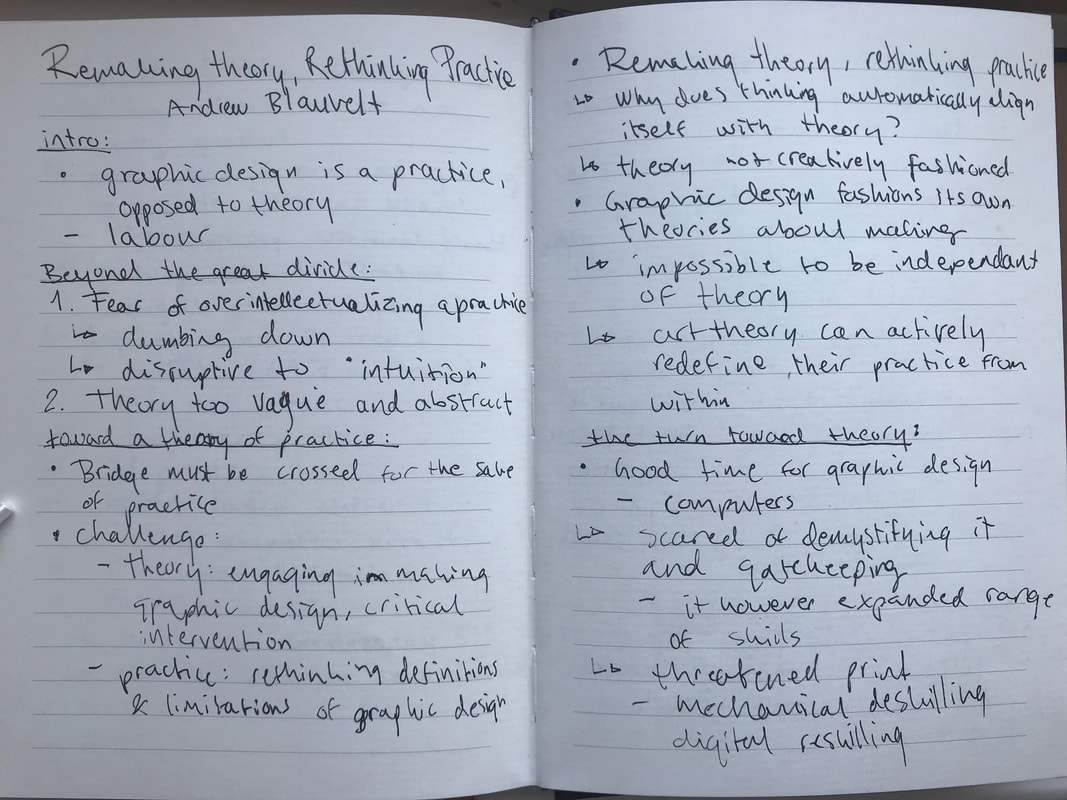 Remaking theory, Rethinking Practice
Andrew Blauvelt
intro:
• graphic design is a practice,
opposed to theory
- labour
Beyond the great divide:
1. Fear of overintellectualizing a practice
↳ dumbing down
↳ disruptive to "intuition"
2. Theory too vague and abstract
toward a theory of practice:
• Bridge must be crossed for the sake
of practice
• challenge:
- theory: engaging in making
graphic design, critical
intervention
- practice: rethinking definitions
& limitations of graphic design
• Remaking theory, rethinking practice
↳ why does thinking automatically align
itself with theory?
↳ theory not creatively fashioned
• Graphic design fashions its own
theories about making
↳ impossible to be independant
of theory
↳ art theory can actively
redefine their practice from
within
the turn toward theory:
• Good time for graphic design
- computers
↳ scared of demystifying it
and gatekeeping
- it however expanded range
of skills
↳ threatened print
- mechanical deskilling
digital reskilling